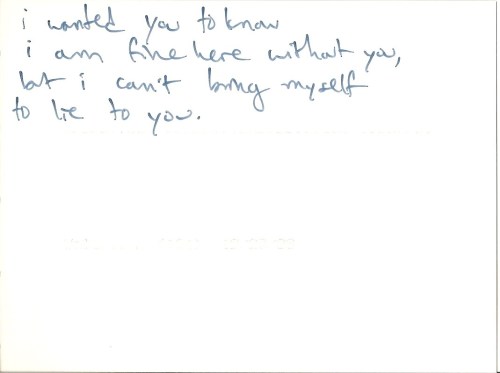 i wanted you to know
i am fine here without you,
but i can't bring myself
to lie to you.